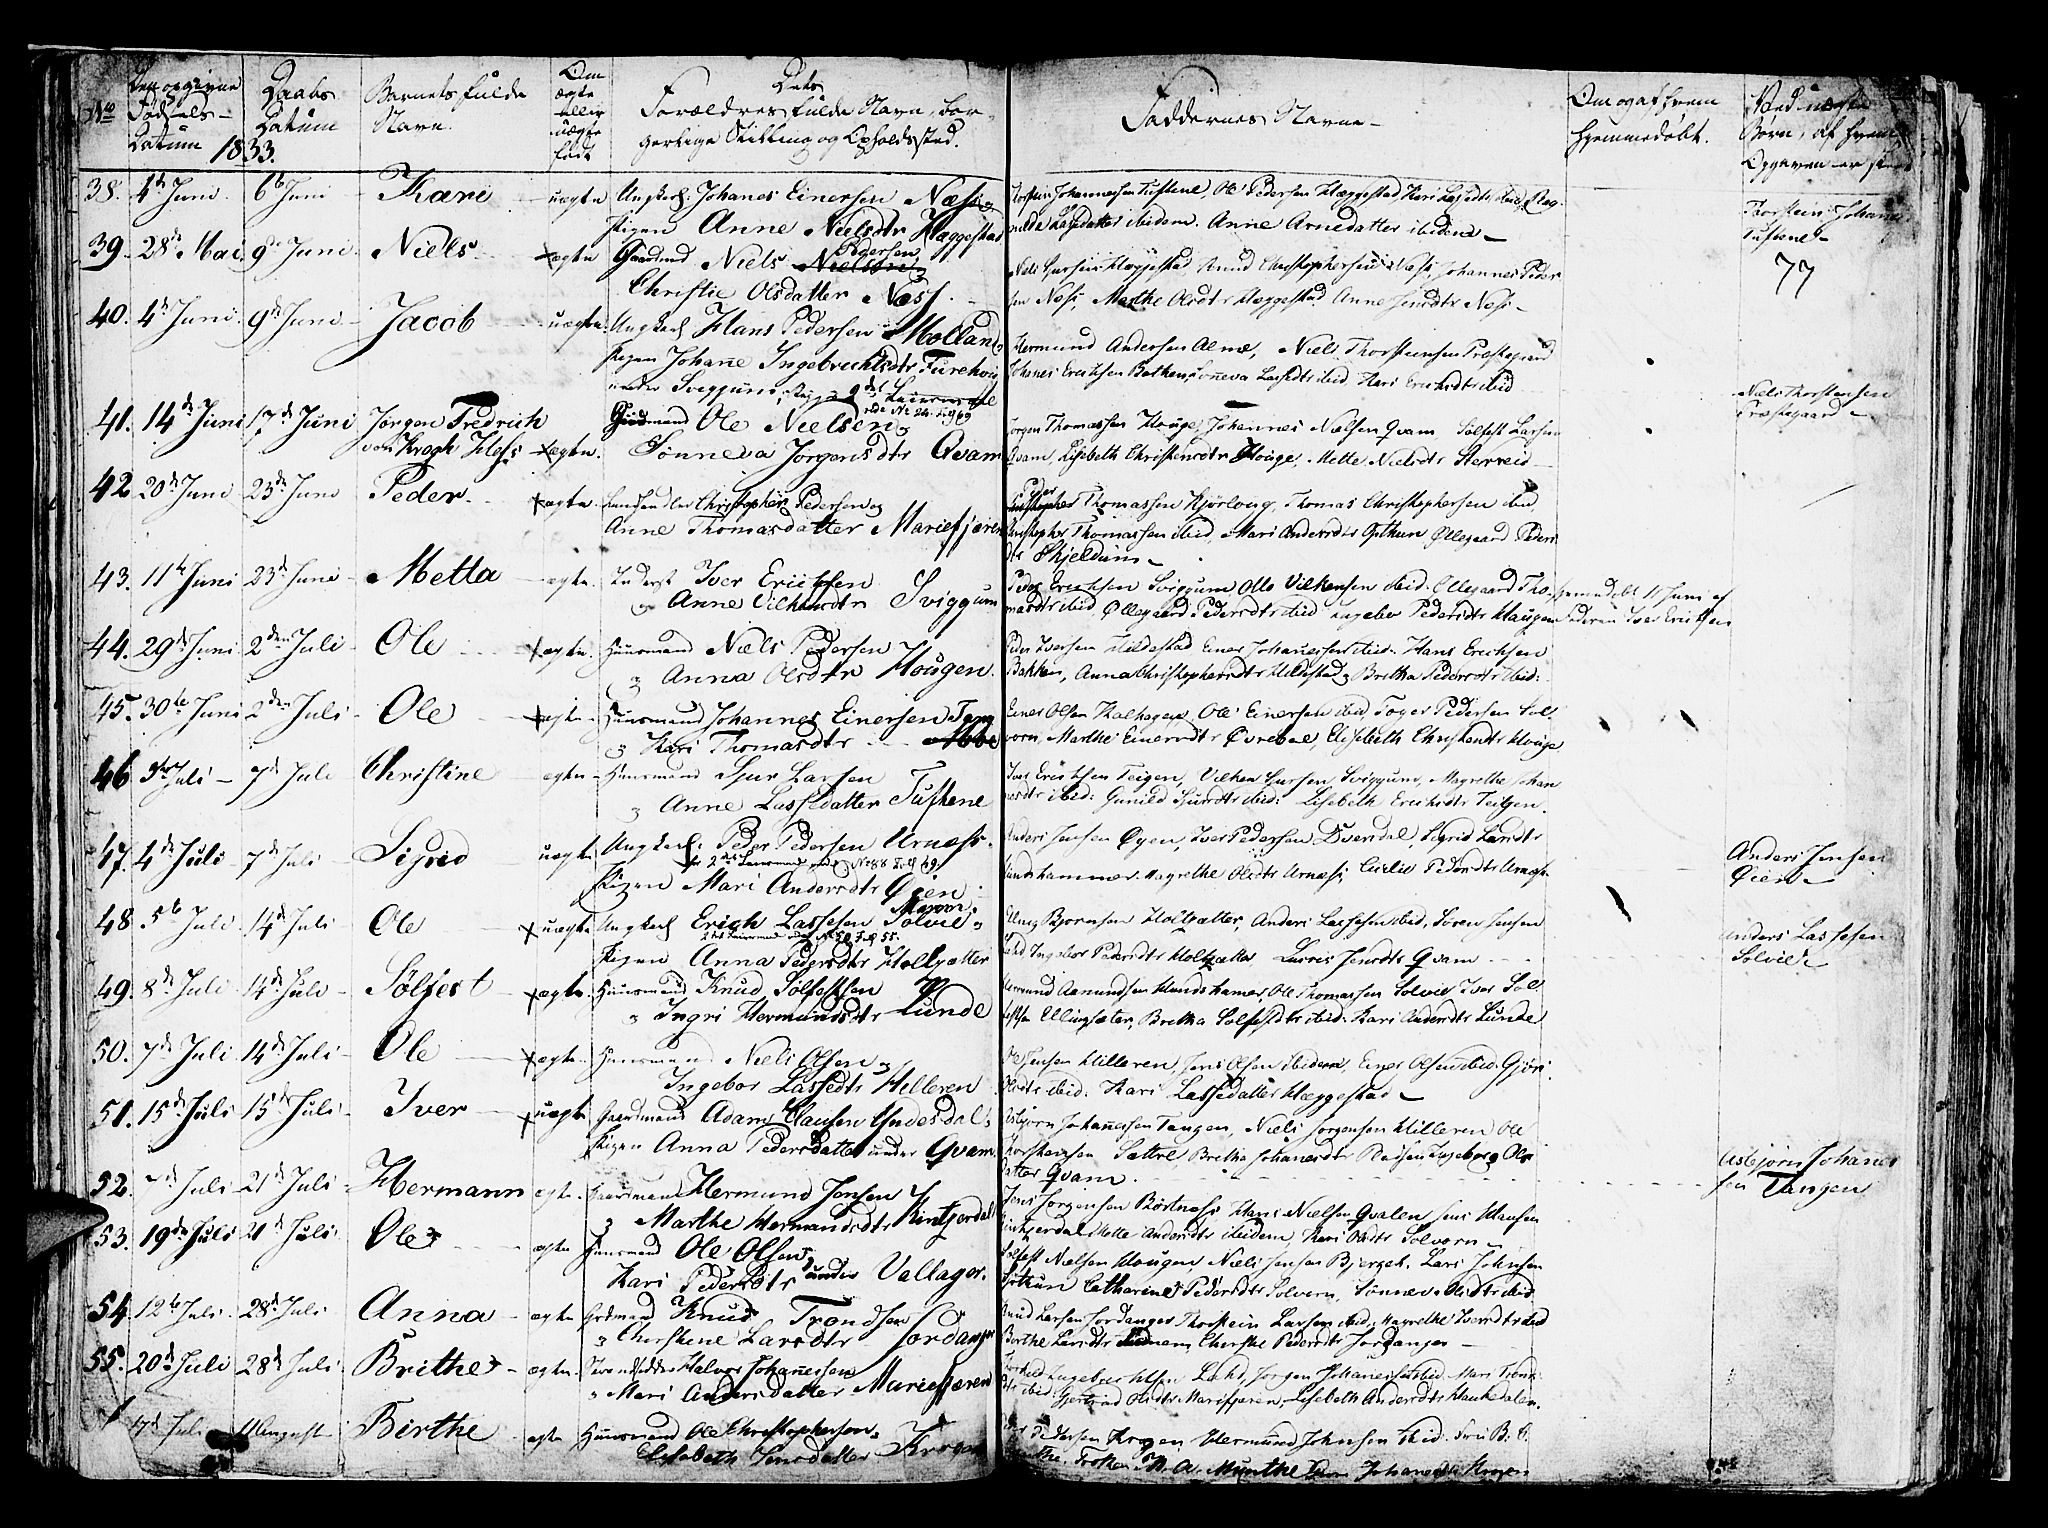 No
Den opgivne Fødsels-Datum 1833.
Daabs Datum
Barnets fulde Navn.
Om ægte eller uægte født
Dets Forældres fulde Navn, borgerlige Stilling og Opholdssted.
Faddernes Navne
Om og af hvem hjemmedøbt.
Ved uægte Børn, af hvem Opgaven er skeed
38. 4de Juni 6te Juni Kari uægte Ungkarl: Johanes Einersen Næss
Pigen Anne Nielsdtr Hæggestad
Thorstein Johannesen Tuftene, Ole Pedersen Hæggestad, Kari Lassedtr ibid, Rag-
nilda Lassedatter ibidem. Anne Arnedatter ibidem
Thorstein Johanes
Tuftene
39. 28de Mai 9de Juni Niels ægte Gaardmd Niels Nielsen Pedersen
Christie Olsdatter Næss.
Næss, Johannes Peder
sen Næss, Marthe Olsdtr Hæggestad Anne Jensdtr Næss
77
40. 4de Juni 9de Juni Jacob uægte Ungkarl Hans Pedersen Molland
Pigen Johane Ingebrechtsdtr Furehoug
under Sviggum,
Hermund Andersen Alme, Niels Thorsteinsen Præstegaard
Johanes Erichsen Bakken, Sønneva Lassedtr ibid Kari Erichsdtr ibid
Niels Thorsteinsen
Præstegaard
41. 14de Juni 17de Juni Jørgen Fredrich
von Krogh Hess ægte Ole Nielsen
Sønneva Jørgensdtr Qvam
Jørgen Thomassen Houge, Johannes Nielsen Qvam Sølfest Larsen
Qvam, Lisebeth Christensdtr Houge, Mette Nielsdtr
42 20de Juni 23de Juni Peder ægte Christopher Pedersen
Anne Thomasdatter Mariefjæren
Peder Thomassen Kjørloug, Thomas Christophersen ibid,
Christopher Thomassen ibid, Mari Andersdtr Øllegaard Peders
dtr Skjeldum
43. 11te Juni 23de Juni Metta ægte Inderst Iver Erichsen
Anne Vilkensdtr Sviggum
Peder Erichsen Sviggum Ole Vilkensen ibid. Øllegaard Tho-
masdtr ibid Øllegaard Pedersdtr ibid Ingebor Pedersdtr Haugen
hjemmedøbt 11 Juni af
Faderen Iver Erichsen
44. 29de Juni 2den Juli Ole ægte Huusmand Niels Pedersen
Anna Olsdtr Hougen.
Peder Iversen Hildestad Einer Johanessen ibid. Hans Erichsen
Bakken, Anna Christophersdtr Hildestad, Britha Pedersdtr ibid:
45. 30te Juni 2den Juli Ole ægte Huusmand Johannes Einersen
Kari Thomasdtr
Einer Olsen Kalhagen, Ole Einersen ibid, Toger Pedersen Sol-
vorn, Marthe Einersdtr Øvrebøe, Elisebeth Christensdtr Houge
46 3de Juli 7de Juli Christine ægte Huusmand Sjur Larsen
Anne Lassedatter Tuftene
Iver Erichsen Teigen, Vilken Sjursen Sviggum, Magrethe Johan
nesdtr ibid: Gunild Sjursdtr ibid: Lisebeth Erichsdtr Teigen.
47. 4de Juli 7de Juli Sigrid uægte Ungkarl: Peder Pedersen Urnæss
Pigen Mari Andersdtr Øien
Anders Jensen Øyen, Iver Pedersen Dversdal, Sigrid Larsdtr
Hundshammer. Magrethe Olsdtr Urnæss; Cicilie Pedersdtr Urnæss.
Anders Jensen
Øien
48 5te Juli 14de Juli Ole uægte Ungkarl Erich Lassesen Solvie
Pigen Anna Pedersdtr Holtsætter
Elling Bjørnsen Holtsætter, Anders Lassesen ibid. Søren Jensen
Ingebor Pedersdtr Holtsætter Jensdtr Qvam
Anders Lassesen
Solvie
49. 8de Juli 14de Juli Sølfest ægte Huusmand Knud Sølfestsen
Ingri Hermundsdtr Lunde
Hermund Aamundsen Hundshamer, Ole Thomassen Solvie Iver Søl-
festsen Ellingsæter, Britha Sølfestdtr ibid. Kari Andersdtr Lunde
50. 7de Juli 14de Juli Ole ægte Huusmand Niels Olsen
Ingebor Lassedtr Hilleren
Ole Jensen Hilleren, Jens Olsen ibidem, Einer Olsen ibid. Gjøri
Olsdtr ibid. Kari Lassedatter Hæggestad
51. 15de Juli 15de Juli Iver uægte Gaardmand Adam Clausen Yndesdal
Pigen Anna Pedersdatter under Qvam
Asbjørn Johanesen Tangen, Niels Jørgensen Hilleren Ole
Thorsteinsen Sættre Britha Johanesdtr Ingeborg Ols-
datter Qvam
Asbjørn Johanes
sen Tangen
52. 7de Juli 21de Juli Hermann ægte Gaardmand Hermund Jensen
Marthe Hermundsdtr Kintjerdal
Jens Jørgensen Børtnæss Hans Nielsen Qvalen Jens Hansen
Kintjerdal Mette Andersdtr ibidem, Kari Olsdtr Solvorn
53. 19de Juli 21de Juli Ole ægte Huusmand Ole Olsen
Kari Pedersdtr under Vallager.
Sølfest Nielsen Hougen, Niels Jensen Bjerget. Lars Johnsen
Catharina Pedersdtr Solvorn, Sønnev Olsdtr ibid.
54. 12te Juli 28de Juli Anna ægte Gdmand Knud Trondsen
Cherstene Larsdtr Jordanger
Knud Larsen Jordanger Thorstein Larsen ibid, Magrethe Iversdtr ibid
Berthe Larsdtr ibidem, Cherstie Pedersdtr Jordanger
55. 20de Juli 28de Juli Brithe ægte Halvor Johanessen
Mari Andersdatter Mariefjæren
Ingebrechtsen Jørgen Johanessen ibid. Mari Trons
dtr ibid. Gjertrud Olsdtr Marifjæren, Lisebeth Andersdtr Haukedalen.
17de Juli August Birthe ægte Huusmand Ole Christophersen
Elisabeth Jensdatter Krogen
Peder Pedersen Krogen Hermund Johnsen ibid. Fru B. C.
Munthe. Frøken M. A. Munthe Johanes Krogen